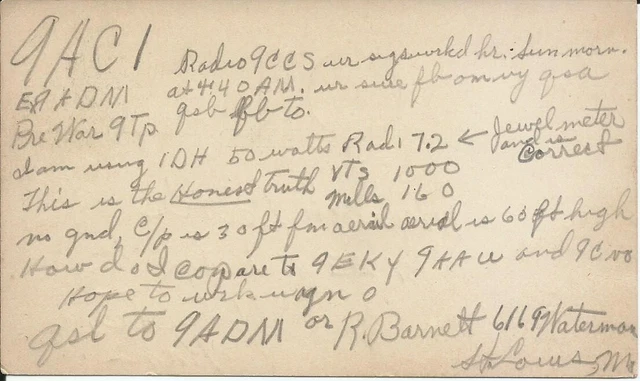 9AC1 Radio 9CCS ur sigs wrkd hr. Sun morn.
Ex 9ADM at 4:40 A.M. ur sure fb om vy qsa
Pre War 9TP qsb fb to.
I am using 1 DH 50 watts Rad 17.2 ← Jewel meter and is correct
This is the Honest truth VTS 1000
Mills 160
no gnd, C/p is 30 ft fm aerial aerial is 60 ft high
How do I compare to 9EKY 9AAU and 9CVO
Hope to wrk u agn
qsl to 9ADM or R. Barnett 6169 Waterman
St. Louis, Mo